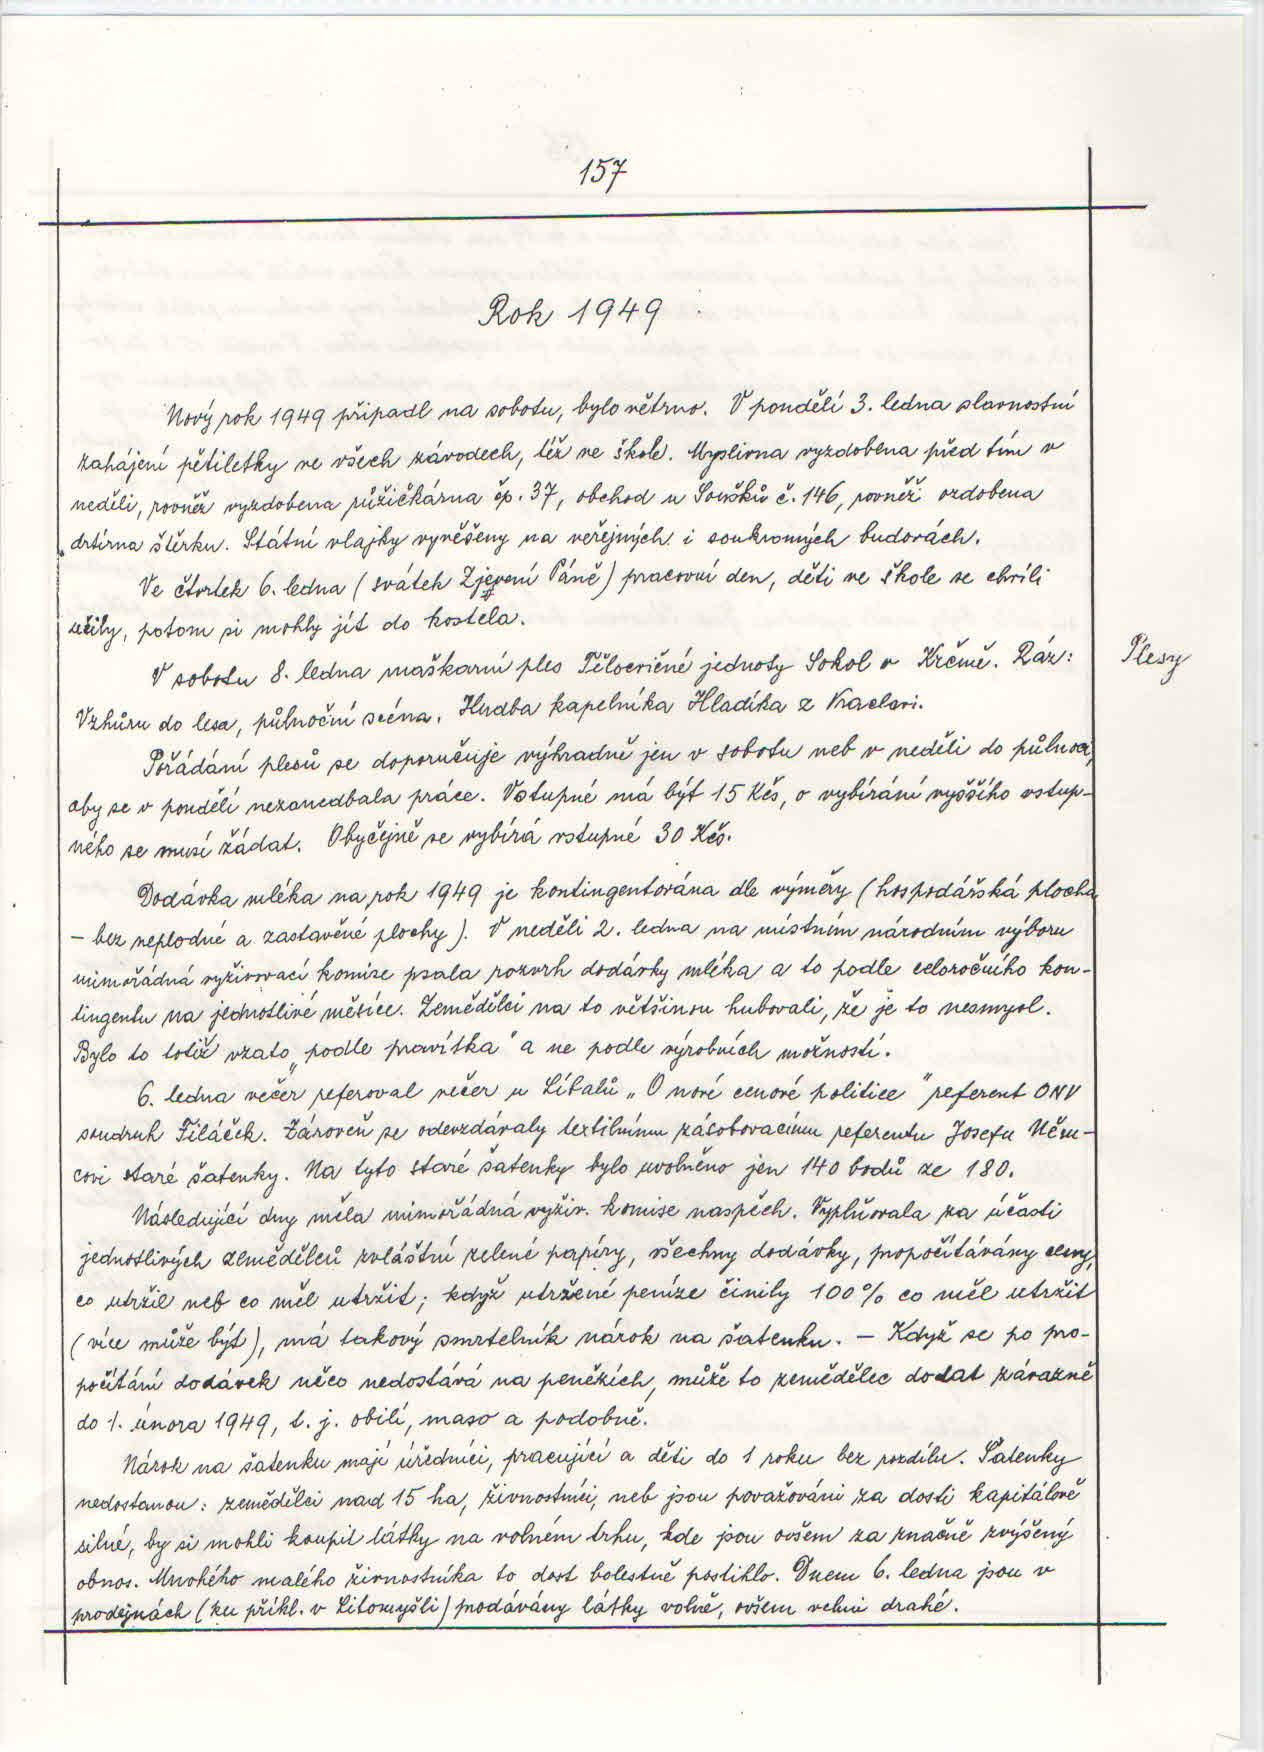 157
Rok 1949
Nový rok 1949 připadl na sobotu, bylo větrno. V pondělí 3. ledna slavnostní
zahájení pětiletky ve všech závodech, též ve škole. Myslivna vyzdobena před tím v
neděli, rovněž vyzdobena růžičkárna čp. 37, obchod u Soušků č. 146, rovněž ozdobena
drtírna štěrku. Státní vlajky vyvěšeny na veřejných i soukromých budovách.
Ve čtvrtek 6. ledna (svátek Zjevení Páně) pracovní den, děti ve škole se chvíli
učily, potom si mohly jít do kostela.
V sobotu 8. ledna maškarní ples Tělocvičné jednoty Sokol v Krčmě. Ráz:
Plesy
Vzhůru do lesa, půlnoční scéna. Hudba kapelníka Hladíka z Vraclavi.
Pořádání plesů se doporučuje výhradně jen v sobotu neb v neděli do půlnoci,
aby se v pondělí nezanedbala práce. Vstupné má být 15 Kčs, o vybírání vyššího vstup-
ného se musí žádat. Obyčejně se vybírá vstupné 30 Kčs.
Dodávka mléka na rok 1949 je kontingentována dle výměry (hospodářská plocha
– bez neplodné a zastavěné plochy). V neděli 2. ledna na místním národním výboru
mimořádná vyživovací komise psala rozvrh dodávky mléka a to podle celoročního kon-
tingentu na jednotlivé měsíce. Zemědělci na to většinou hubovali, že je to nesmysl.
Bylo to totiž vzato „podle pravítka" a ne podle výrobních možností.
6. ledna večer referoval večer u Líbalů „O nové cenové politice" referent ONV
soudruh Filáček. Zároveň se odevzdávaly textilnímu zásobovacímu referentu Josefu Něm-
covi staré šatenky. Na tyto staré šatenky bylo uvolněno jen 140 bodů ze 180.
Následující dny měla mimořádná vyživ. komise naspěch. Vyplňovala za účasti
jednotlivých zemědělců zvláštní zelené papíry, všechny dodávky, propočítávány ceny,
co utržil neb co měl utržit; když utržené peníze činily 100% co měl utržit
(více může být), má takový smrtelník nárok na šatenku. – Když se po pro-
počítání dodávek něco nedostává na penězích, může to zemědělec dodat závazně
do 1. února 1949, t. j. obilí, maso a podobně.
Nárok na šatenku mají úředníci, pracující a děti do 1 roku bez rozdílu. Šatenky
nedostanou: zemědělci nad 15 ha, živnostníci, neb jsou považováni za dosti kapitálově
silné, by si mohli koupit látky na volném trhu, kde jsou ovšem za značně zvýšený
obnos. Mnohého malého živnostníka to dost bolestně postihlo. Dnem 6. ledna jsou v
prodejnách (ku příkl. v Litomyšli) prodávány látky volně, ovšem velmi drahé.